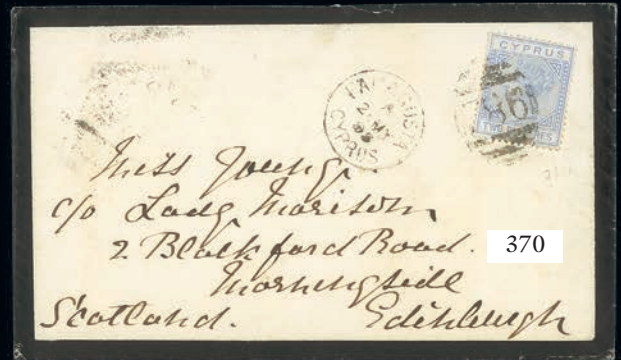 CYPRUS
FAMAGUSTA
CYPRUS
Miss Young
c/o Lady Morison
2 Blackford Road.
370
Morningside
Scotland. Edinburgh